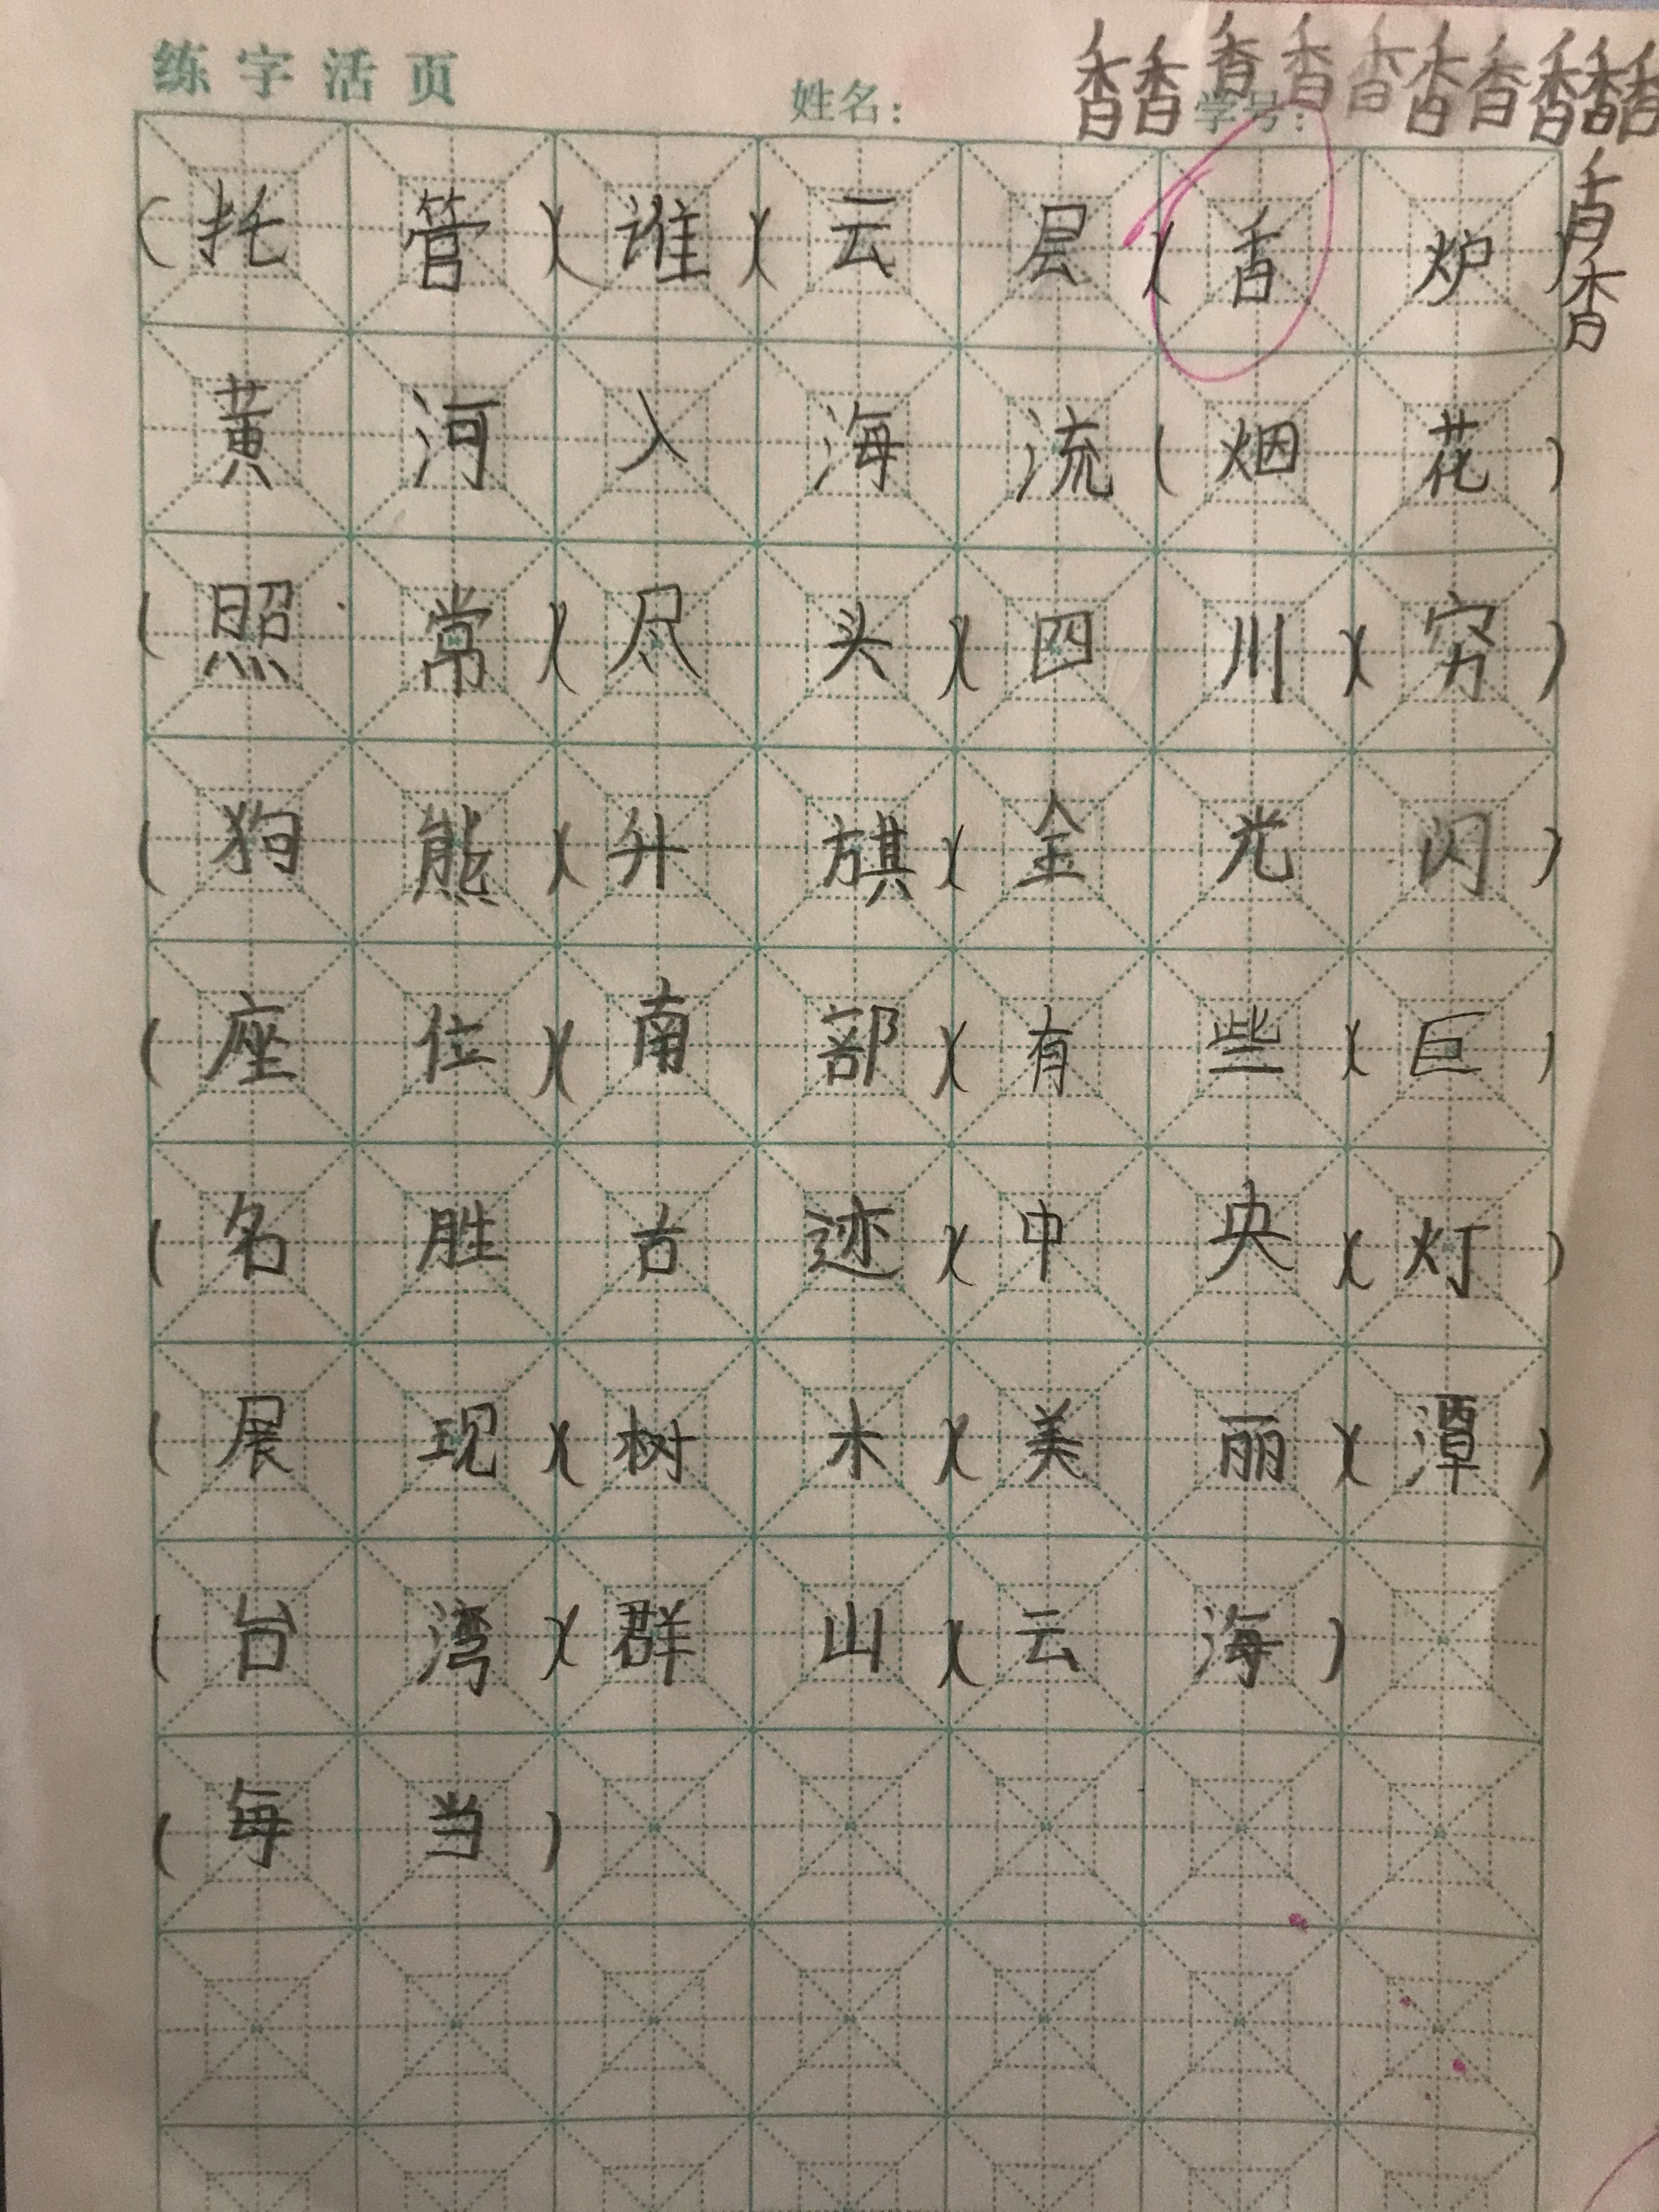 练字活页
姓名： 学号：
香香香香香香香香香香
香
香
（托管）（谁）（云层）（香炉）
黄河入海流（烟花）
（照常）（尽头）（四川）（穷）
（狗熊）（升旗）（金光闪）
（座位）（南部）（有些）（巨）
（名胜古迹）（中央）（灯）
（展现）（树木）（美丽）（潭）
（台湾）（群山）（云海）
（每当）